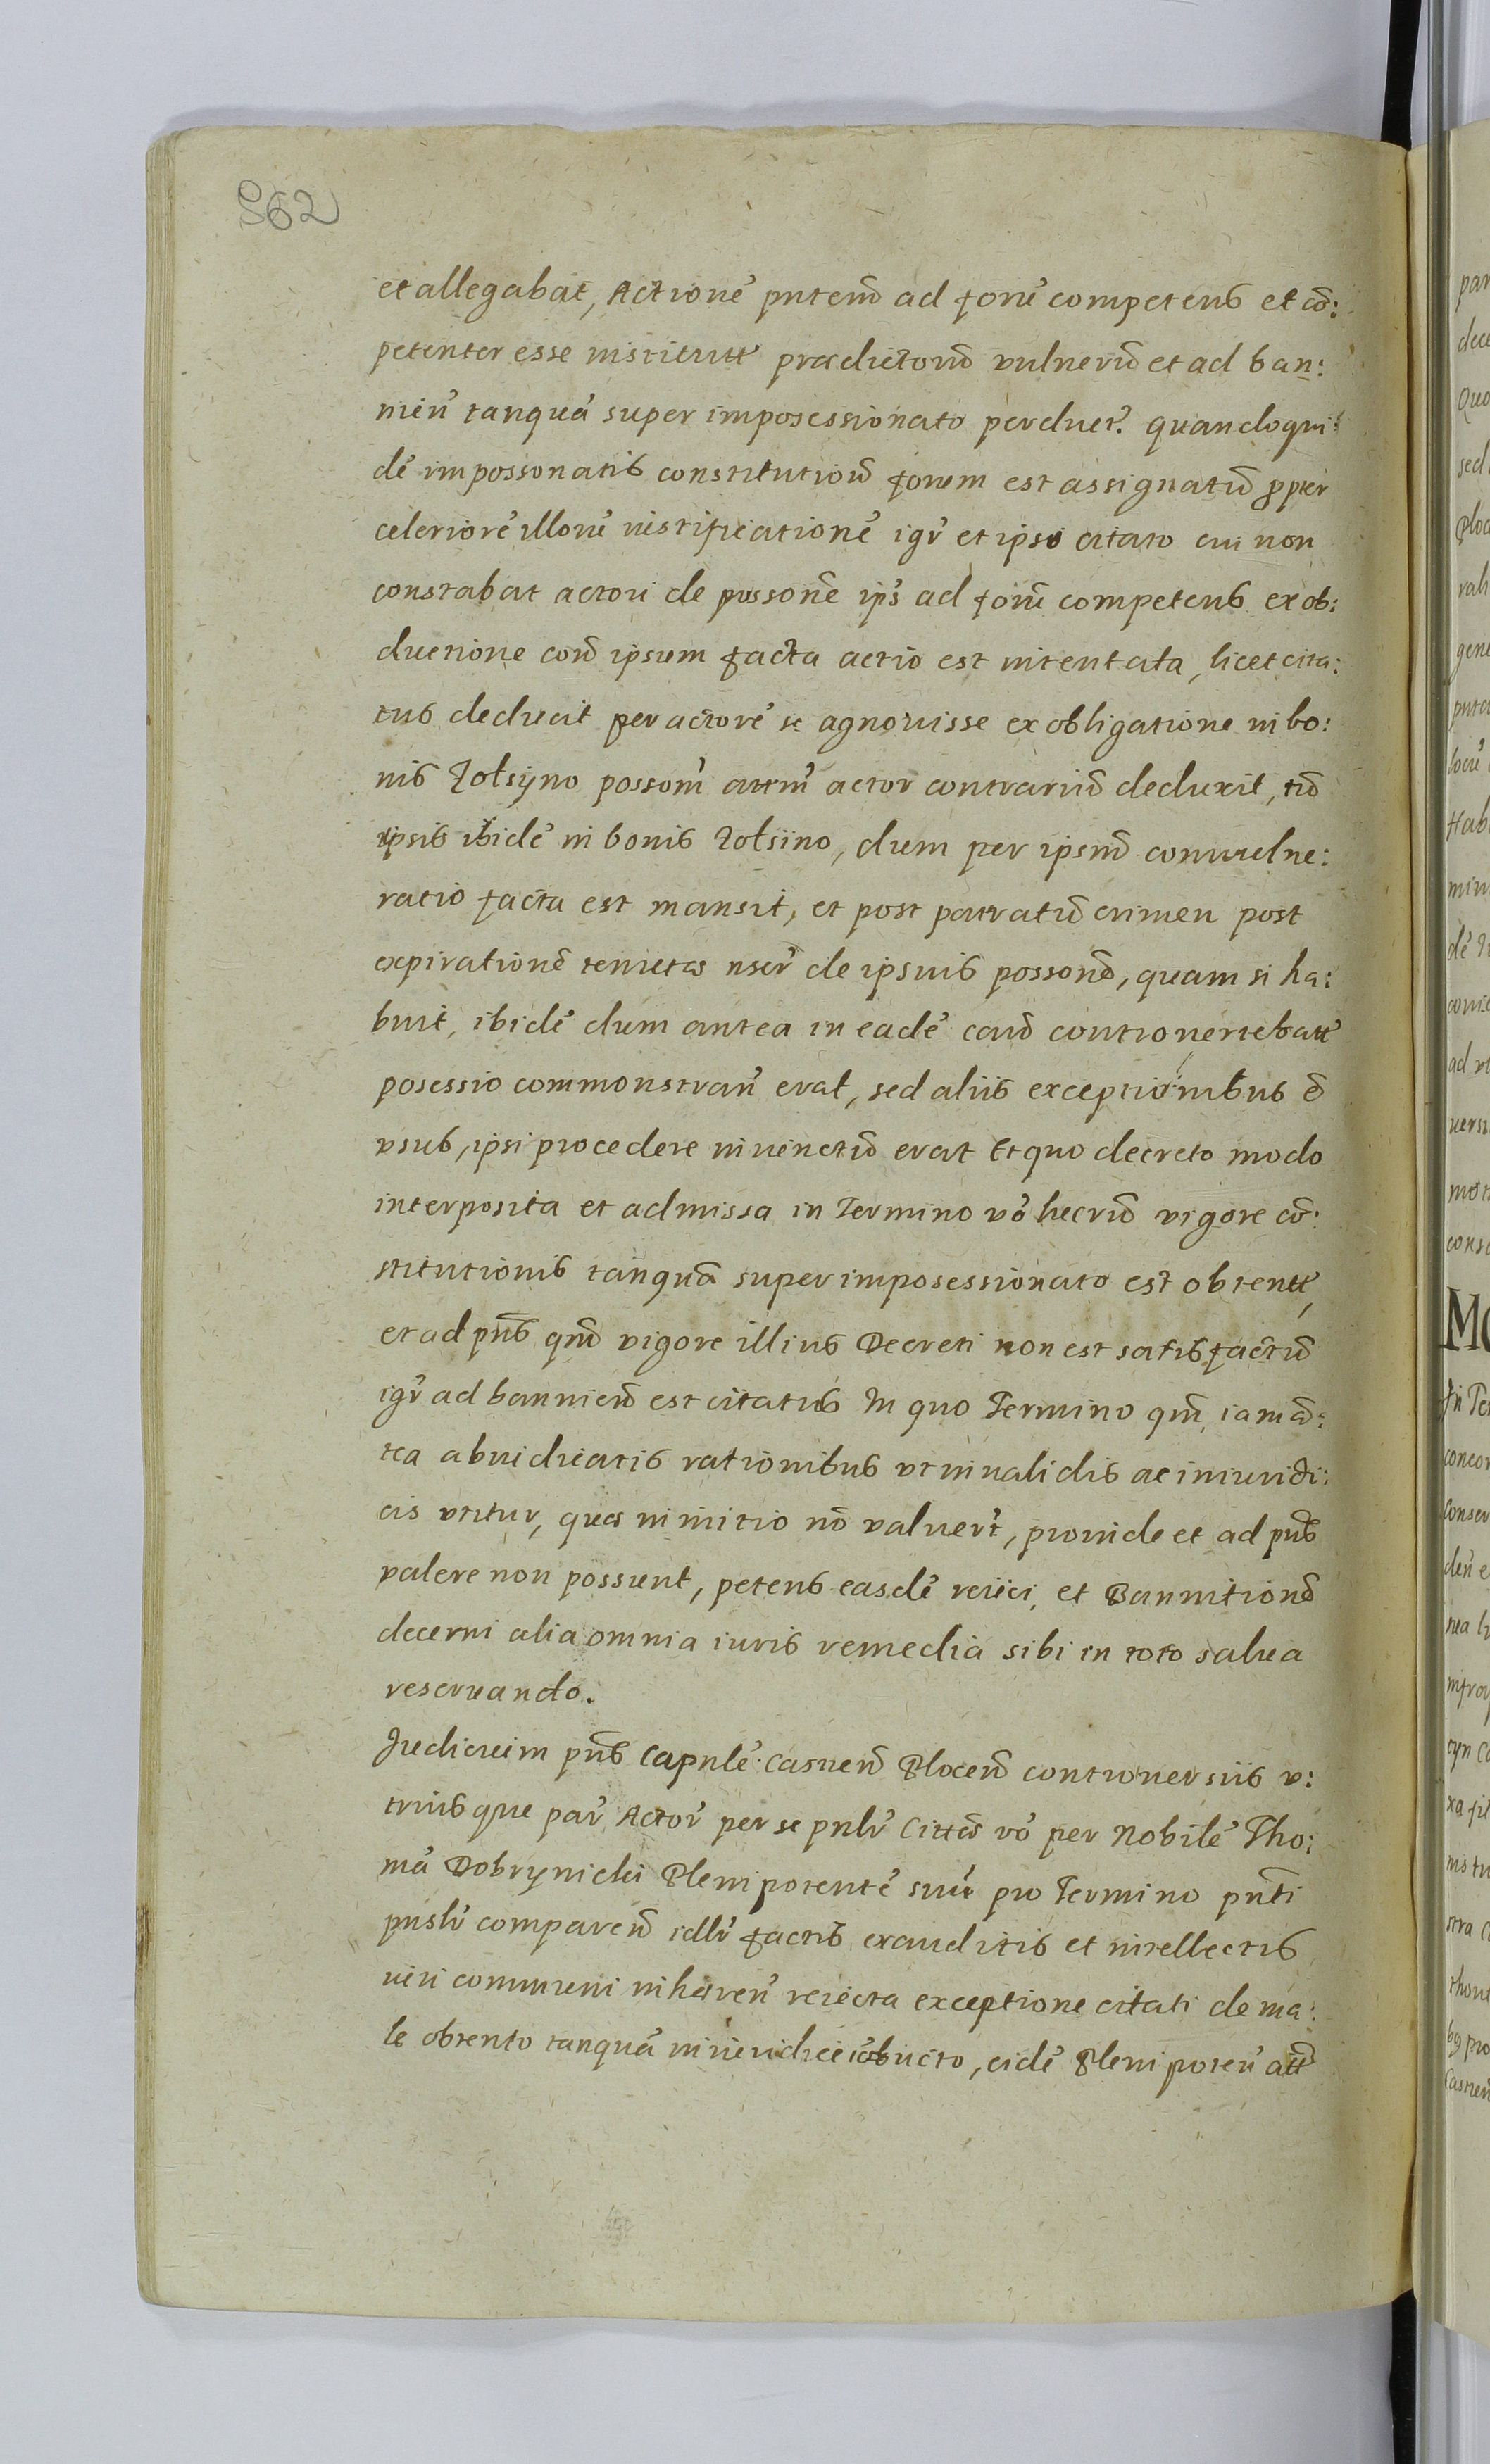 562
et allegabat, Actione͂ pntem̃ ad foru͂ competens et co͂:
petenter esse institutt͂ praedictoru͂ vulneru͂ et ad ban:
nien͂ tanqua͂ super imposessionato perducr͂. quandoqui:
de͂ impossonatis constitutiou͂ forum est assignatu͂ ꝓpter
celeriore͂ illoru͂ iustificatione͂ igr͂ et ipso citato cui non
constabat actori de possone͂ ips͂ ad foru͂ competens ex ob:
ductione con͂ ipsum facta actio est intentata, licet cita:
tus deducit per actore͂ se agnovisse ex obligatione in bo:
nis Zołsyno possom͂ autm͂ actor contrariu͂ deduxit, tu͂
ipsis ibide͂ in bonis Zołsino, dum per ipsm͂ convulne:
ratio facta est mansit, et post patratu͂ crimen post
expiratione͂ tenutas nscr͂ de ipsius possone͂, quam si ha:
buit, ibide͂ dum antea in eade͂ cau͂ controvertebatt͂
posessio commonstran͂ erat, sed aliis exceptionibus e͂
usus, ipsi procedere iniunctu͂ erat Et quo decreto modo
interposita et admissa in Termino vo͂ lucru͂ vigore co͂:
stitutionis tanqua͂ super imposessionato est obtentt͂,
et ad pns͂ qm͂ vigore illius Decreti non est satisfactu͂
igr͂ ad banniend͂ est citatus In quo Termino qm͂ iam a͂:
tea abiudicatis rationibus ut invalidis ac iniuridi:
cis utitur, quae in initio no͂ valuert͂, proinde et ad pns͂
valere non possunt, petens easde͂ reiici, et Bannitione͂
decerni alia omnia iuris remedia sibi in toto salva
reservando.
Iudicium pns͂ Capnle͂ Castren͂ Plocen͂ controversiis u:
triusque par͂ Actor͂ per se pnlr͂ Cittj͂ vo͂ per Nobile͂ Tho:
ma͂ Dobrynicki Plenipotente͂ suu͂ pro Termino pnti͂
pnslr͂ comparen͂ idlr͂ factis exauditis et intellectis
iuri communi inhaeren͂ reiecta exceptione citati de ma:
le obtento tanqua͂ iniuridice inducto, eide͂ Plenipoten͂ att͂